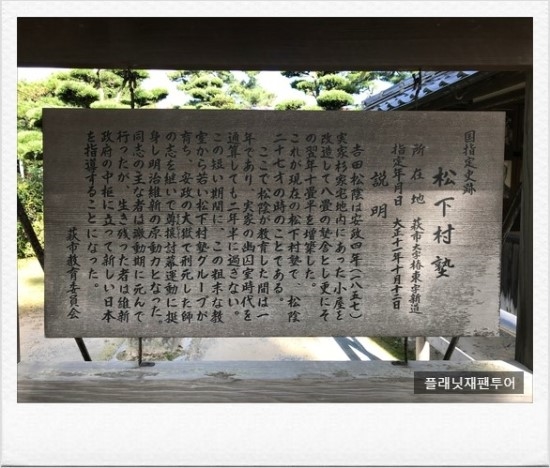 国指定史跡
松下村塾
所在地 萩市大字椿東字新道
指定年月日 大正十一年十月十二日
説明
吉田松陰は安政四年(一八五七)
実家杉家宅地内にあった小屋を
改造して八畳の塾舎とし更にそ
の翌年十畳半を増築した。
これが現在の松下村塾で、松陰
二十七才の時のことである。
ここで松陰が教育した間は一
年であり、実家の幽囚室時代を
通算しても二年半に過ぎない。
この短い期間に、この粗末な教
室から若い松下村塾グループが
育ち、安政の大獄で刑死した師
の志を継いで尊攘討幕運動に挺
身し明治維新の原動力となった。
同志の主な者は激動期に死んで
行ったが、生き残った者は維新
政府の中枢に立って新しい日本
を指導することになった。
萩市教育委員会
플래닛재팬투어